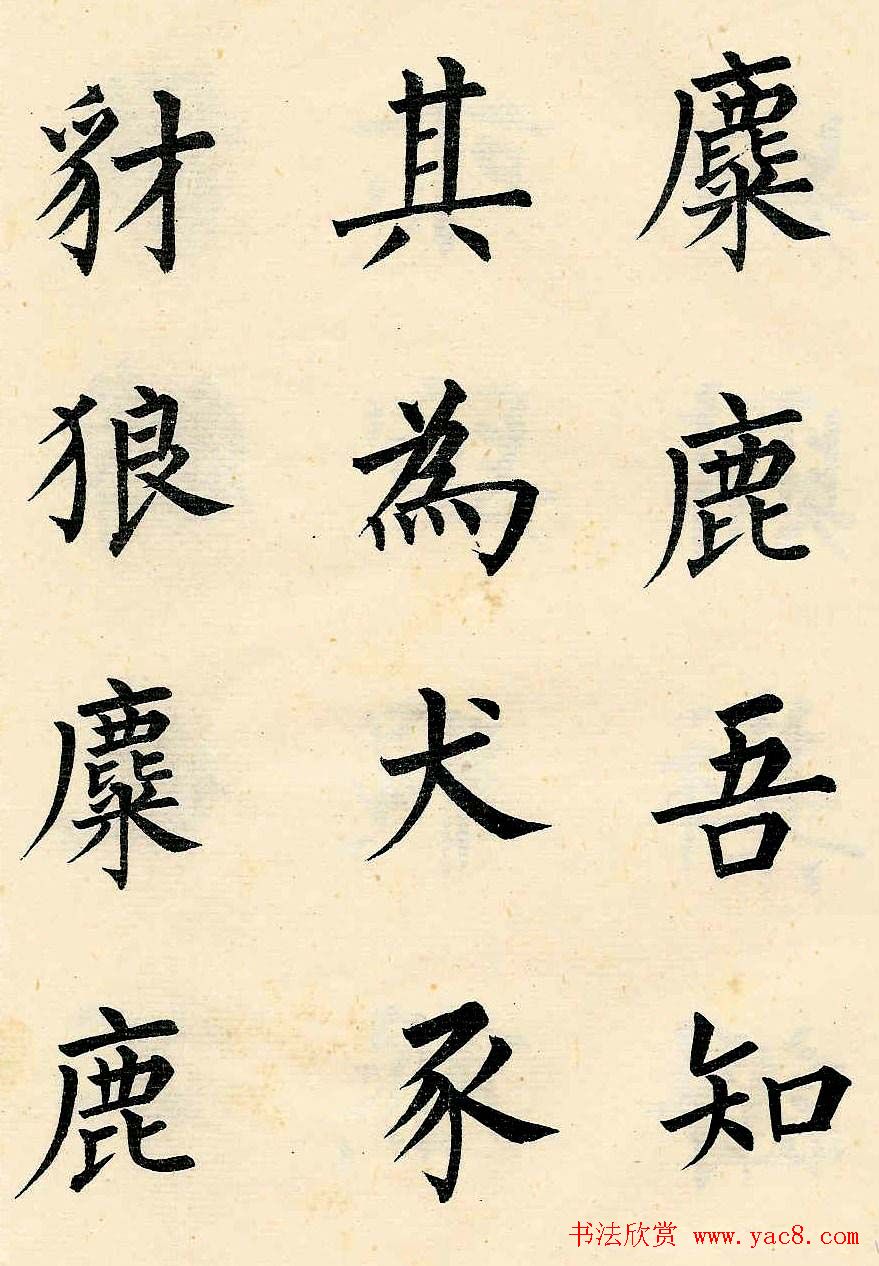 麋鹿吾知
其為犬豕
豺狼麋鹿
书法欣赏 www.yac8.com